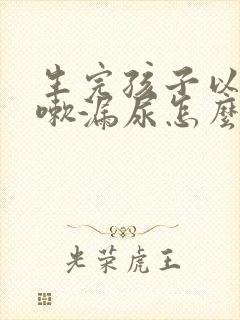 生完孩子以
嗽-漏尿怎麼
光荣虎王